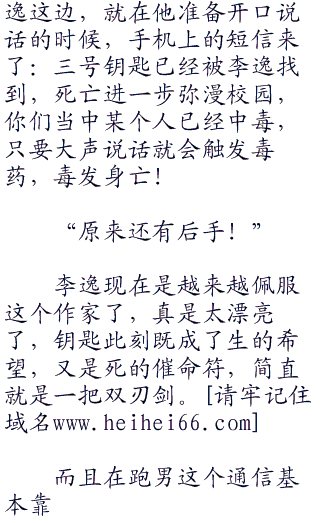 逸这边，就在他准备开口说
话的时候，手机上的短信来
了：三号钥匙已经被李逸找
到，死亡进一步弥漫校园，
你们当中某个人已经中毒，
只要大声说话就会触发毒
药，毒发身亡！
“原来还有后手！”
李逸现在是越来越佩服
这个作家了，真是太漂亮
了，钥匙此刻既成了生的希
望，又是死的催命符，简直
就是一把双刃剑。[请牢记住
域名www.heihei66.com]
而且在跑男这个通信基
本靠